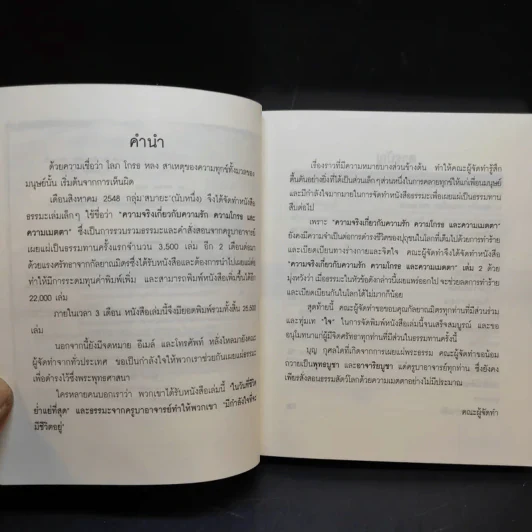 คำนำ
ด้วยความเชื่อว่า โลภ โกรธ หลง สาเหตุของความทุกข์ทั้งมวลของ
มนุษย์นั้น เริ่มต้นจากการเห็นผิด
เดือนสิงหาคม 2548 กลุ่ม'สบายะ'(ฉบับหนึ่ง) จึงได้จัดทำหนังสือ
ธรรมะเล่มเล็กๆ ใช้ชื่อว่า "ความจริงเกี่ยวกับความรัก ความโกรธ และ
ความเมตตา" ซึ่งเป็นการรวบรวมธรรมะและคำสั่งสอนจากครูบาอาจารย์
เผยแผ่เป็นธรรมทานครั้งแรกจำนวน 3,500 เล่ม อีก 2 เดือนต่อมา
ด้วยแรงศรัทธาจากกัลยาณมิตรผู้ที่ได้รับหนังสือและต้องการเผยแผ่ต่อ
ทำให้มีการระดมทุนค่าพิมพ์เพิ่ม และสามารถพิมพ์หนังสือเพิ่มขึ้นได้อีก
22,000 เล่ม
ภายในเวลา 3 เดือน หนังสือเล่มนี้จึงมียอดพิมพ์รวมทั้งสิ้น 25,500
เล่ม
นอกจากนี้ยังมีจดหมาย อีเมล์ และโทรศัพท์ หลั่งไหลมายังคณะ
ผู้จัดทำจากทั่วประเทศ ขอเป็นกำลังใจให้พวกเราช่วยกันเผยแผ่ธรรมะ
เพื่อดำรงไว้ซึ่งพระพุทธศาสนา
ใครหลายคนบอกเราว่า พวกเขาได้รับหนังสือเล่มนี้ "ในวันที่ชีวิต
ย่ำแย่ที่สุด" และธรรมะจากครูบาอาจารย์ทำให้พวกเขา "มีกำลังใจที่จะ
มีชีวิตอยู่"
เรื่องราวที่มีความหมายบางส่วนข้างต้น ทำให้คณะผู้จัดทำรู้สึก
ตื้นตันอย่างยิ่งที่ได้เป็นส่วนเล็กๆส่วนหนึ่งในการคลายทุกข์ให้แก่เพื่อนมนุษย์
และมีกำลังใจมากมายในการจัดทำหนังสือธรรมะเพื่อเผยแผ่เป็นธรรมทาน
สืบต่อไป
เพราะ "ความจริงเกี่ยวกับความรัก ความโกรธ และความเมตตา"
ยังคงมีความจำเป็นต่อการดำรงชีวิตของปุถุชนในโลกที่เต็มไปด้วยการทำร้าย
และเบียดเบียนทางร่างกายและจิตใจ คณะผู้จัดทำจึงได้จัดทำหนังสือ
"ความจริงเกี่ยวกับความรัก ความโกรธ และความเมตตา" เล่ม 2 ด้วย
มุ่งหวังว่า เมื่อธรรมะในหัวข้อดังกล่าวนี้เผยแพร่ออกไป จะช่วยลดการทำร้าย
และเบียดเบียนกันในโลกได้ไม่มากก็น้อย
สุดท้ายนี้ คณะผู้จัดทำขอขอบคุณกัลยาณมิตรทุกท่านที่มีส่วนร่วม
และทุ่มเท "ใจ" ในการจัดพิมพ์หนังสือเล่มนี้จนเสร็จสมบูรณ์ และขอ
อนุโมทนาแก่ผู้มีจิตศรัทธาทุกท่านที่มีส่วนในธรรมทานครั้งนี้
บุญ กุศลใดที่เกิดจากการเผยแผ่พระธรรม คณะผู้จัดทำขอน้อม
ถวายเป็นพุทธบูชา และอาจาริยบูชา แด่ครูบาอาจารย์ทุกท่าน ซึ่งยังคง
เพียรสั่งสอนธรรมสัตว์โลกด้วยความเมตตาอย่างไม่มีประมาณ
คณะผู้จัดทำ